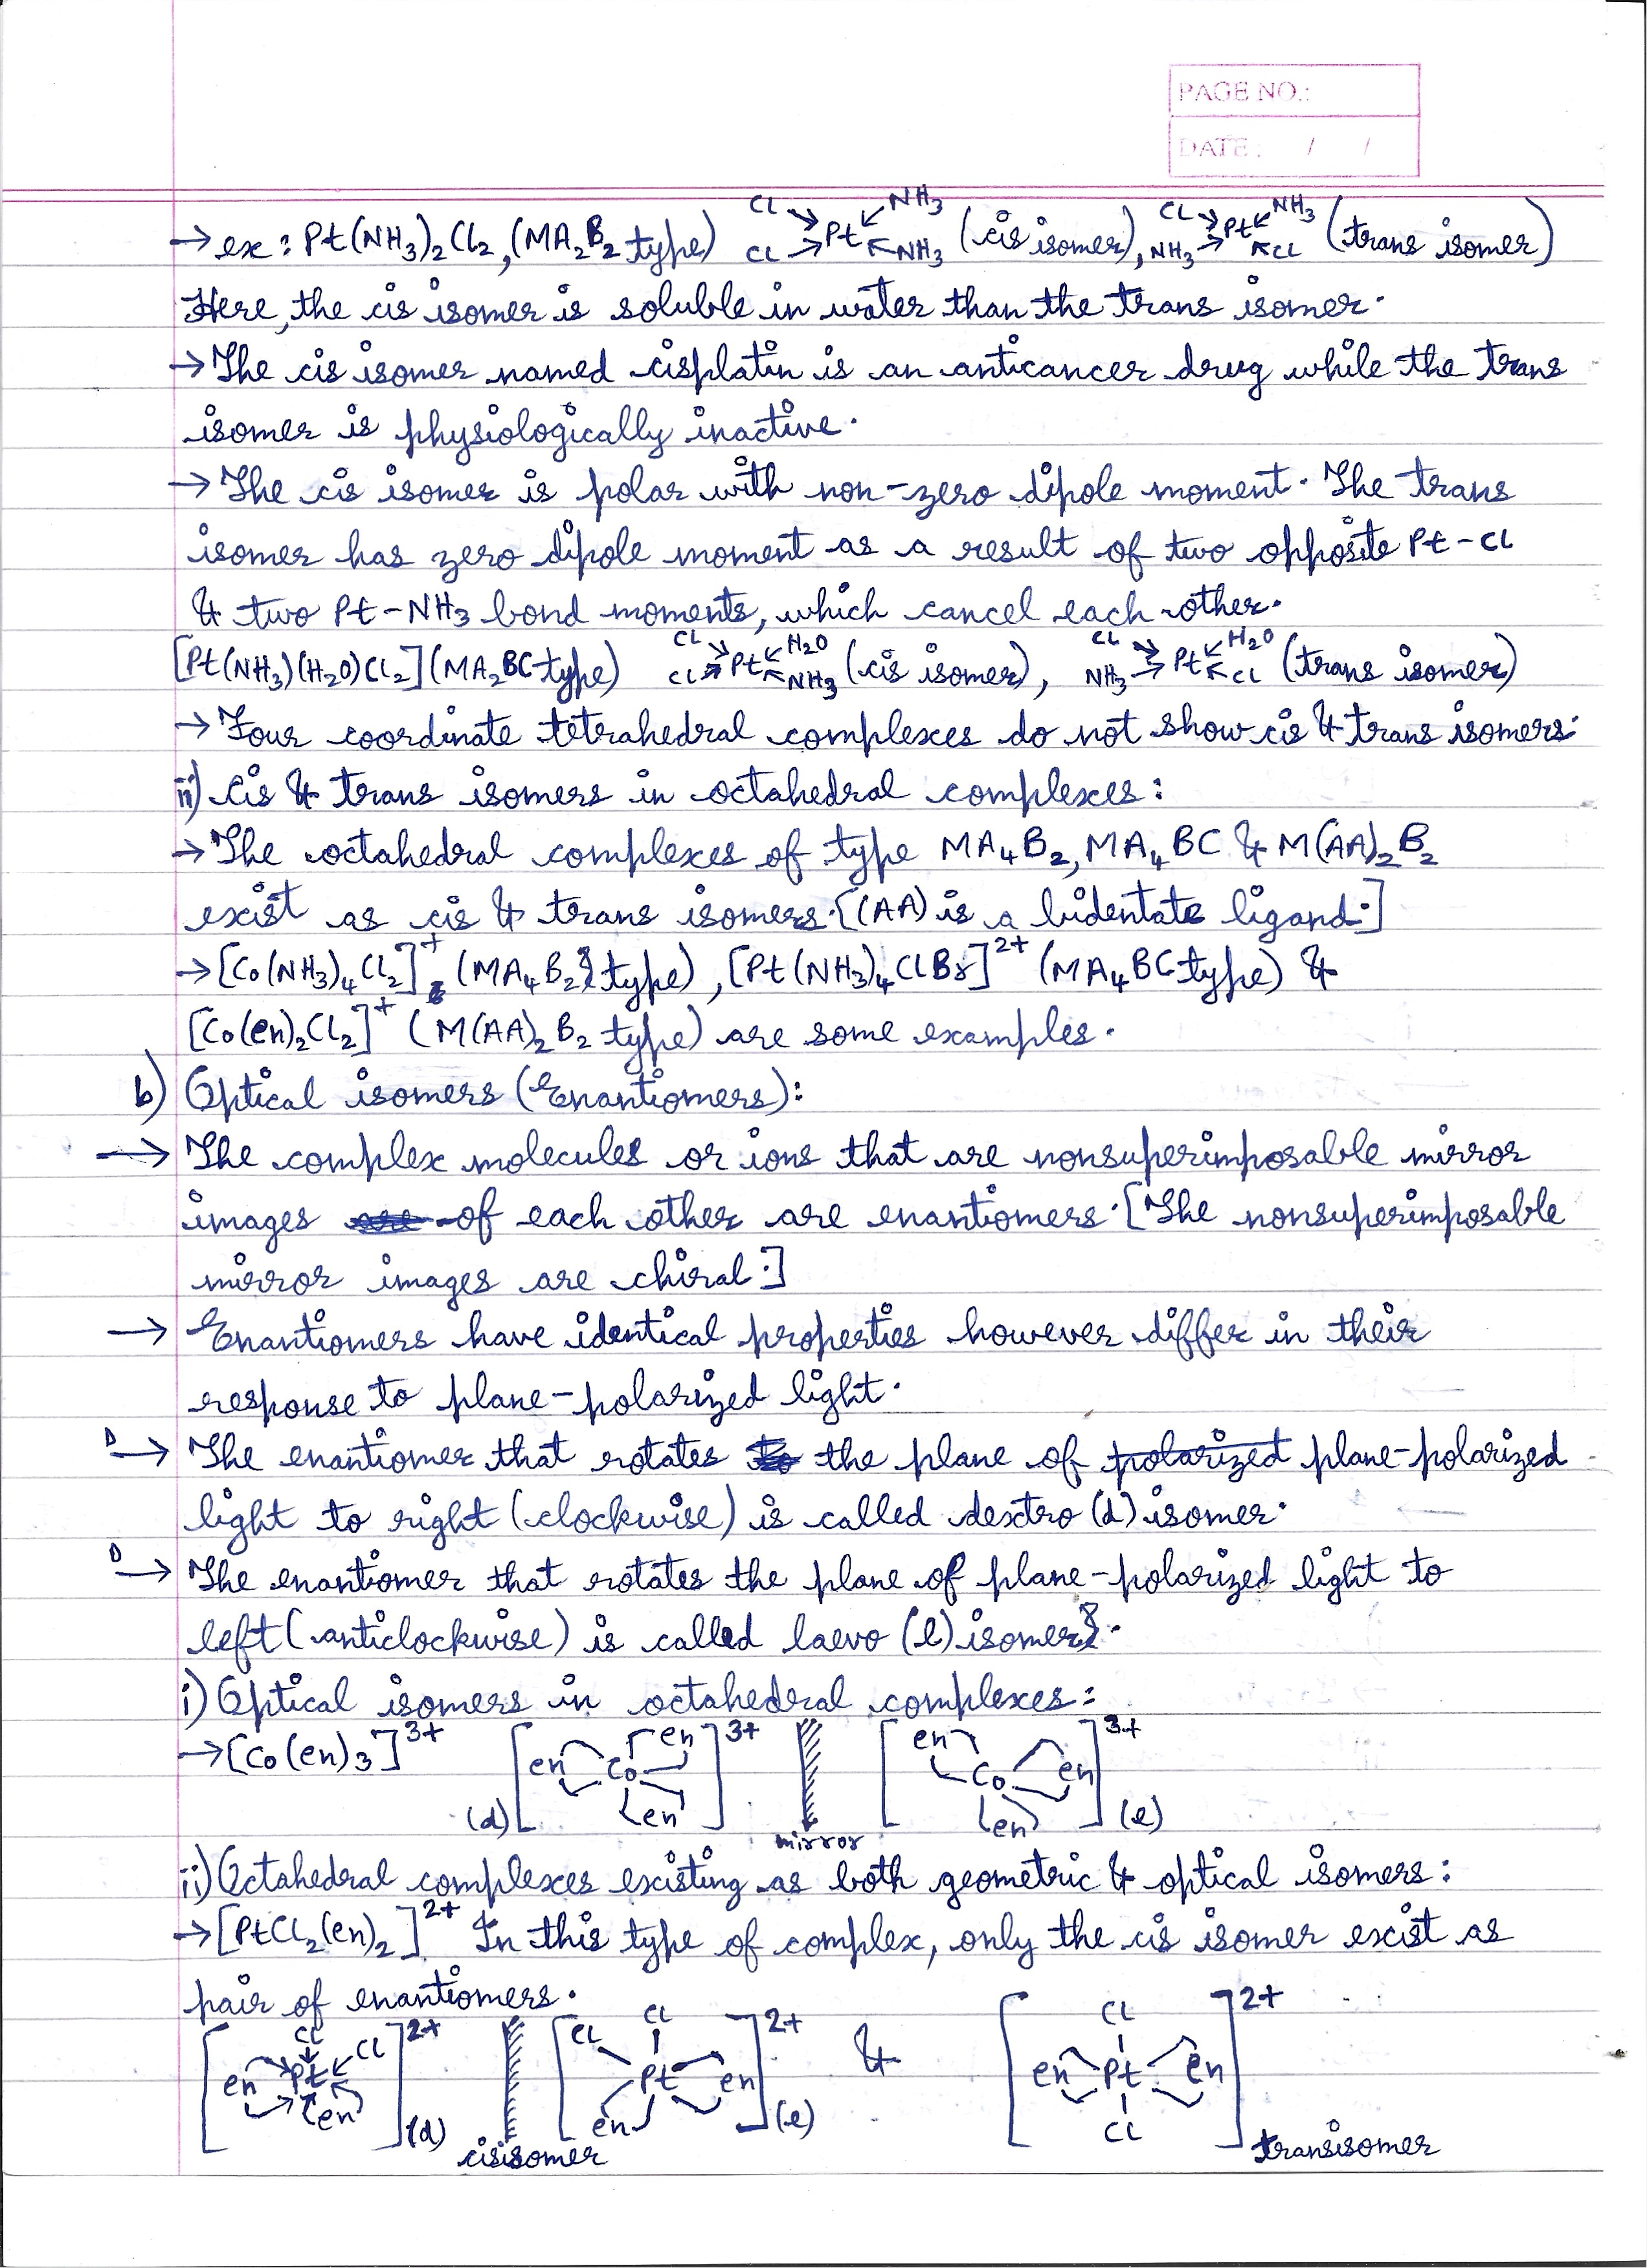 PAGE NO.:
DATE: / /
→ ex: Pt(NH3)2Cl2, (MA2B2 type) Cl Cl Pt NH3 NH3 (cis isomer), Cl NH3 Pt NH3 Cl (trans isomer)
Here, the cis isomer is soluble in water than the trans isomer.
→ The cis isomer named cisplatin is an anticancer drug while the trans
isomer is physiologically inactive.
→ The cis isomer is polar with non-zero dipole moment. The trans
isomer has zero dipole moment as a result of two opposite Pt-Cl
& two Pt-NH3 bond moments, which cancel each other.
[Pt(NH3)(H2O)Cl2] (MA2BC type) Cl Cl Pt H2O NH3 (cis isomer), Cl NH3 Pt H2O Cl (trans isomer)
→ Four coordinate tetrahedral complexes do not show cis & trans isomers.
ii) Cis & trans isomers in octahedral complexes:
→ The octahedral complexes of type MA4B2, MA4BC & M(AA)2B2
exist as cis & trans isomers. [(AA) is a bidentate ligand.]
→ [Co(NH3)4Cl2]+ (MA4B2 type), [Pt(NH3)4ClBr]2+ (MA4BC type) &
[Co(en)2Cl2]+ (M(AA)2B2 type) are some examples.
b) Optical isomers (Enantiomers):
→ The complex molecules or ions that are nonsuperimposable mirror
images of each other are enantiomers. [The nonsuperimposable
mirror images are chiral.]
→ Enantiomers have identical properties however differ in their
response to plane-polarized light.
→ The enantiomer that rotates the plane of polarized plane-polarized
light to right (clockwise) is called dextro (d) isomer.
→ The enantiomer that rotates the plane of plane-polarized light to
left (anticlockwise) is called laevo (l) isomer.
i) Optical isomers in octahedral complexes:
→ [Co(en)3]3+ (d) [en Co en en]3+ mirror [en Co en en]3+ (l)
ii) Octahedral complexes existing as both geometric & optical isomers:
→ [PtCl2(en)2]2+ In this type of complex, only the cis isomer exist as
pair of enantiomers.
[en Cl Pt Cl en]2+ (d) [Cl Cl Pt en en]2+ (l) & [Cl en Pt en Cl]2+
cisisomer transisomer